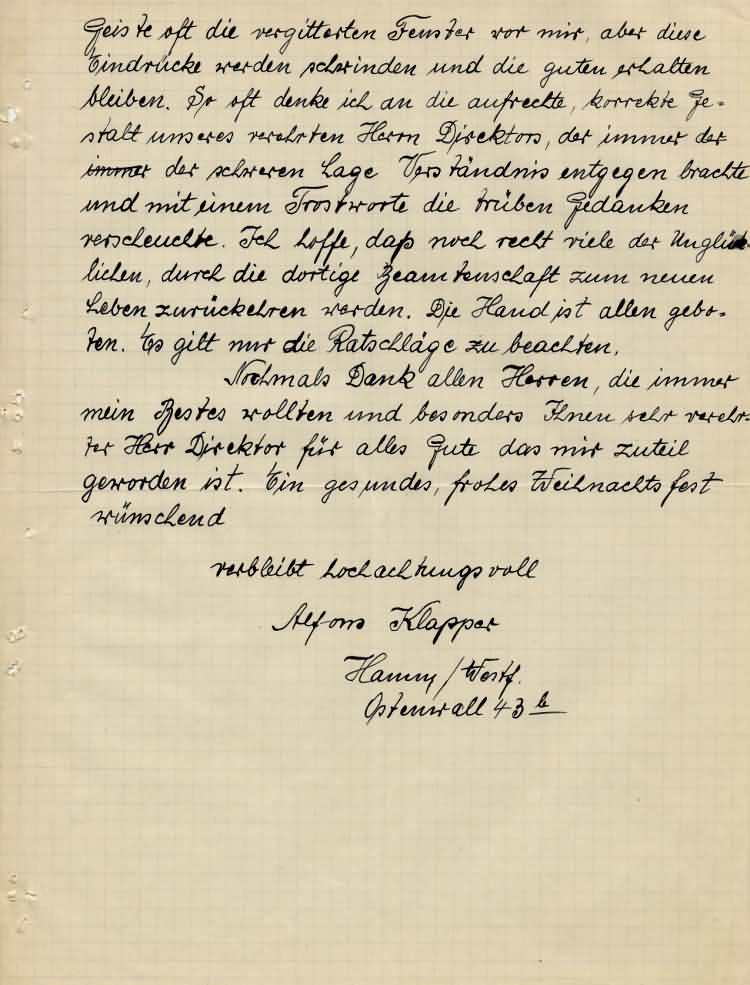 Geiste oft die vergitterten Fenster vor mir, aber diese
Eindrücke werden schwinden und die guten erhalten
bleiben. So oft denke ich an die aufrechte, korrekte Ge-
stalt unseres verehrten Herrn Direktors, der immer der
immer der schweren Lage Verständnis entgegen brachte
und mit einem Trostworte die trüben Gedanken
verscheuchte. Ich hoffe, daß noch recht viele der Unglück-
lichen, durch die dortige Beamtenschaft zum neuen
Leben zurückehren werden. Die Hand ist allen gebo-
ten. Es gilt nur die Ratschläge zu beachten.
Nochmals Dank allen Herren, die immer
mein Bestes wollten und besonders Ihnen sehr verehr-
ter Herr Direktor für alles Gute das mir zuteil
geworden ist. Ein gesundes, frohes Weihnachtsfest
wünschend
verbleibt hochachtungsvoll
Alfons Klapper
Hamm/Westf.
Ostenwall 43 b